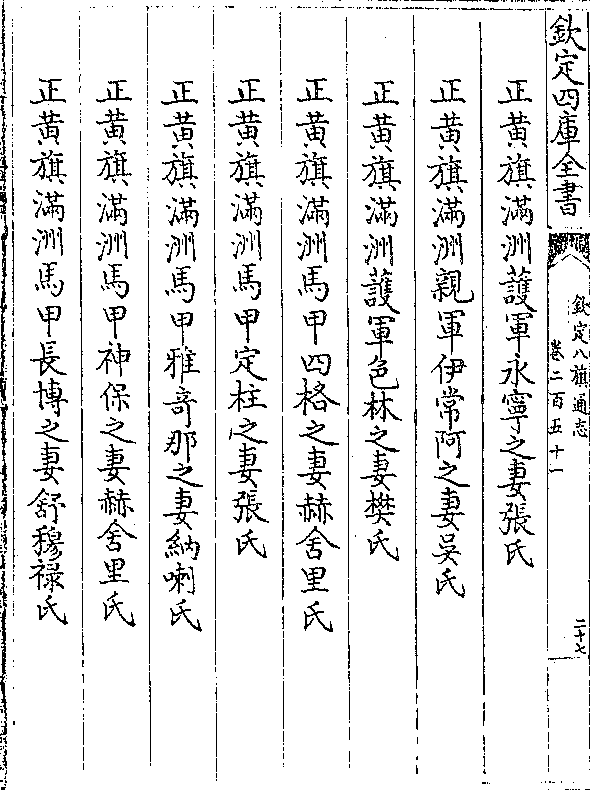 欽定四庫全書
欽定八旗通志
卷二百五十一
二十七
正黄旗滿洲護軍永寧之妻張氏
正黄旗滿洲親軍伊常阿之妻吳氏
正黄旗滿洲護軍色林之妻樊氏
正黄旗滿洲馬甲四格之妻赫舍里氏
正黄旗滿洲馬甲定柱之妻張氏
正黄旗滿洲馬甲雅竒那之妻納喇氏
正黄旗滿洲馬甲神保之妻赫舍里氏
正黄旗滿洲馬甲長博之妻舒穆禄氏